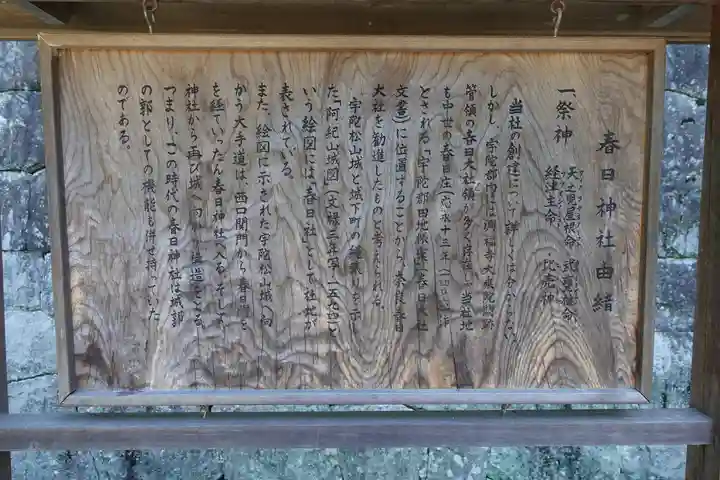 春日神社由緒
一祭神 天之児屋根命 武甕槌命
経津主命 比売神
当社の創建について詳しくはわからない。
しかし、宇陀郡内には興福寺大乗院跡
管領の春日大社領が多く存在し、当社地
も中世の春日庄(応永十三年(一四〇六)
とされる「宇陀郡田地帳案」春日大社
文書)に位置することから、奈良春日
大社を勧進したものと考えられる。
宇陀松山城と城下町の縄張りを示
た「阿紀山城図」(文禄三年(一五九四)と
いう絵図には「春日社」として社地が
表されている。
また、絵図に示された宇陀松山城へ向
かう大手道は、西口関門から春日門を
を経ていったん春日神社へ入る。そして、
神社から再び城へ向かう道造となる。
つまり、この時代の春日神社は城郭
の郭としての機能も併せ持っていた
のである。